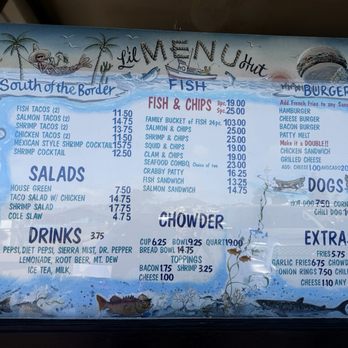 Lil MENU Hut
South of the Border
FISH TACOS (2) 11.50
SALMON TACOS (2) 14.75
SHRIMP TACOS (2) 13.75
CHICKEN TACOS (2) 12.50
MEXICAN STYLE SHRIMP COCKTAIL 15.75
SHRIMP COCKTAIL 12.50
SALADS
HOUSE GREEN 7.50
TACO SALAD W/ CHICKEN 14.75
SHRIMP SALAD 17.75
COLE SLAW 4.75
DRINKS 3.75
PEPSI, DIET PEPSI, SIERRA MIST, DR. PEPPER
LEMONADE, ROOT BEER, MT. DEW
ICE TEA, MILK
FISH
FISH & CHIPS 3pc. 19.00
5pc. 25.00
FAMILY BUCKET of FISH 26pc. 103.00
SALMON & CHIPS 25.00
SHRIMP & CHIPS 25.00
SQUID & CHIPS 19.00
CLAM & CHIPS 19.00
SEAFOOD COMBO, Choice of two 23.00
CRABBY PATTY 16.25
FISH SANDWICH 13.25
SALMON SANDWICH 14.75
CHOWDER
CUP 6.25 BOWL 9.25 QUART 19.00
BREAD BOWL 14.75
TOPPINGS
BACON 1.75 SHRIMP 3.25
CHEESE 1.00
BURGER
Add French fries to any
HAMBURGER
CHEESE BURGER
BACON BURGER
PATTY MELT
Make it a DOUBLE!!
CHICKEN SANDWICH
GRILLED CHEESE
ADD: CHEESE 1.00 AVOCADO
DOGS
HOT DOG 7.50 CORN
CHILI DOG
EXTRA
FRIES 5.75
GARLIC FRIES 6.75 CHOWD
ONION RINGS 7.50 CHILI
CHEESE 1.10 ANY